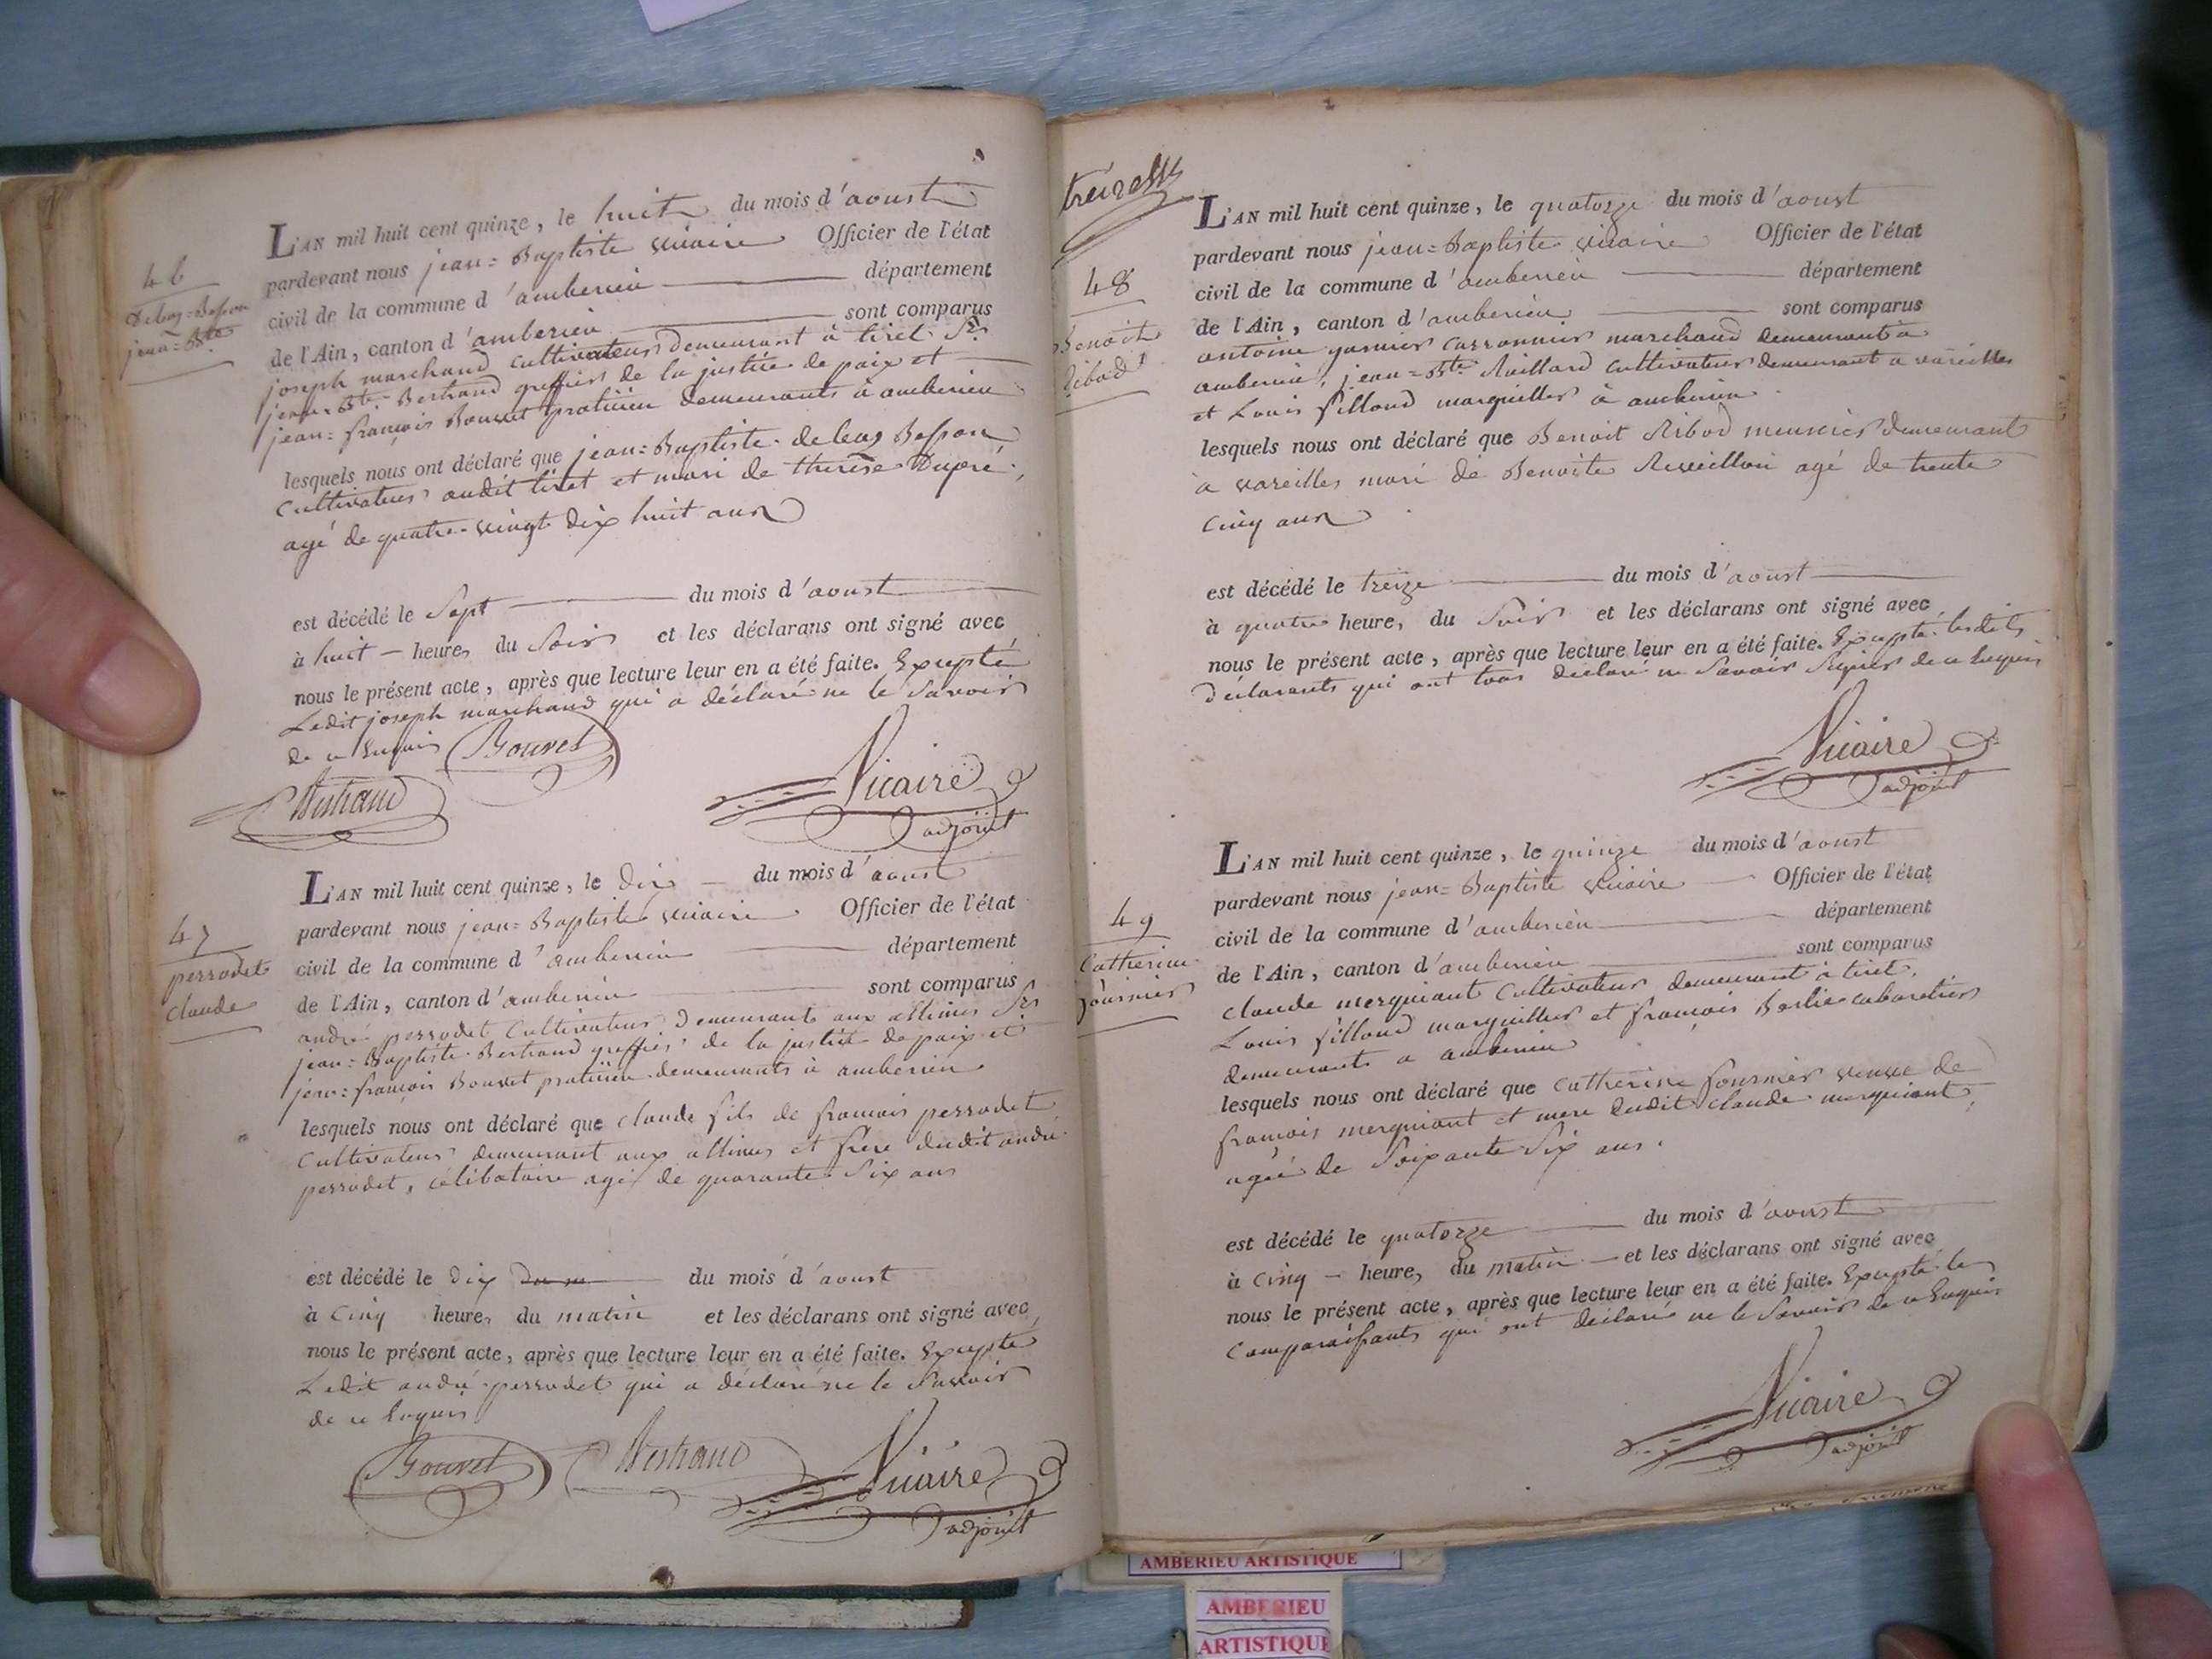 46
Delang=Besson
jean=Bte
L'AN mil huit cent quinze, le huit du mois d'aoust
pardevant nous jean=Baptiste vicaire Officier de l'état
civil de la commune d'amberieu département
de l'Ain, canton d'amberieu sont comparus
joseph marchand cultivateur demeurant à tiret Srs
jean=Bte Bertrand greffier de la justice de paix et
jean=françois Bouvet praticien demeurants à amberieu
lesquels nous ont déclaré que jean=Baptiste Besson
cultivateur audit tiret et mari de therese Dupré,
agé de quatre vingt dix huit ans
est décédé le Sept du mois d'aoust
à huit heures du Soir et les déclarans ont signé avec
nous le présent acte, après que lecture leur en a été faite. Excepté
Ledit joseph marchand qui a déclaré ne le Savoir
de ce Enquis Bouvet
Bertrand
Vicaire
adjoint
47
perrodet
claude
L'AN mil huit cent quinze, le dix du mois d'aoust
pardevant nous jean=Baptiste vicaire Officier de l'état
civil de la commune d'amberieu département
de l'Ain, canton d'amberieu sont comparus
andré perrodet Cultivateur demeurant aux allimes Srs
jean=Baptiste Bertrand greffier de la justice de paix et
jean=françois Bouvet praticien demeurants à amberieu
lesquels nous ont déclaré que claude fils de françois perrodet
Cultivateur demeurant aux allimes et frere dudit andré
perrodet, célibataire agé de quarante Six ans
est décédé le dix du mois d'aoust
à Cinq heures du matin et les déclarans ont signé avec
nous le présent acte, après que lecture leur en a été faite. Excepté
Ledit andré perrodet qui a déclaré ne le Savoir
de ce Enquis
Bouvet Bertrand Vicaire
adjoint
48
Benoit
Ribod
L'AN mil huit cent quinze, le quatorze du mois d'aoust
pardevant nous jean=Baptiste vicaire Officier de l'état
civil de la commune d'amberieu département
de l'Ain, canton d'amberieu sont comparus
antoine marchand demeurant à
amberieu, jean=Bte cultivateur demeurant a vareilles
et Louis fillond marguillier à amberieu
lesquels nous ont déclaré que Benoit Ribod meunier demeurant
à vareilles mari de Benoite Reveillon agé de trente
cinq ans
est décédé le treize du mois d'aoust
à quatre heures du Soir et les déclarans ont signé avec
nous le présent acte, après que lecture leur en a été faite. Excepté lesdits
déclarants qui ont tous déclaré ne Savoir Signer de ce Enquis
Vicaire
adjoint
49
Catherine
fournier
L'AN mil huit cent quinze, le quinze du mois d'aoust
pardevant nous jean=Baptiste vicaire Officier de l'état
civil de la commune d'amberieu département
de l'Ain, canton d'amberieu sont comparus
claude merguiant Cultivateur demeurant à tiret,
Louis fillond marguillier et françois cabaretier
demeurants a amberieu
lesquels nous ont déclaré que Catherine fournier veuve de
françois merguiant et mere dudit claude merguiant,
agée de Soixante Six ans.
est décédé le quatorze du mois d'aoust
à cinq heures du matin et les déclarans ont signé avec
nous le présent acte, après que lecture leur en a été faite. Excepté les
Comparaissants qui ont déclaré ne le Savoir de ce Enquis
Vicaire
adjoint
AMBERIEU ARTISTIQUE
AMBERIEU
ARTISTIQUE